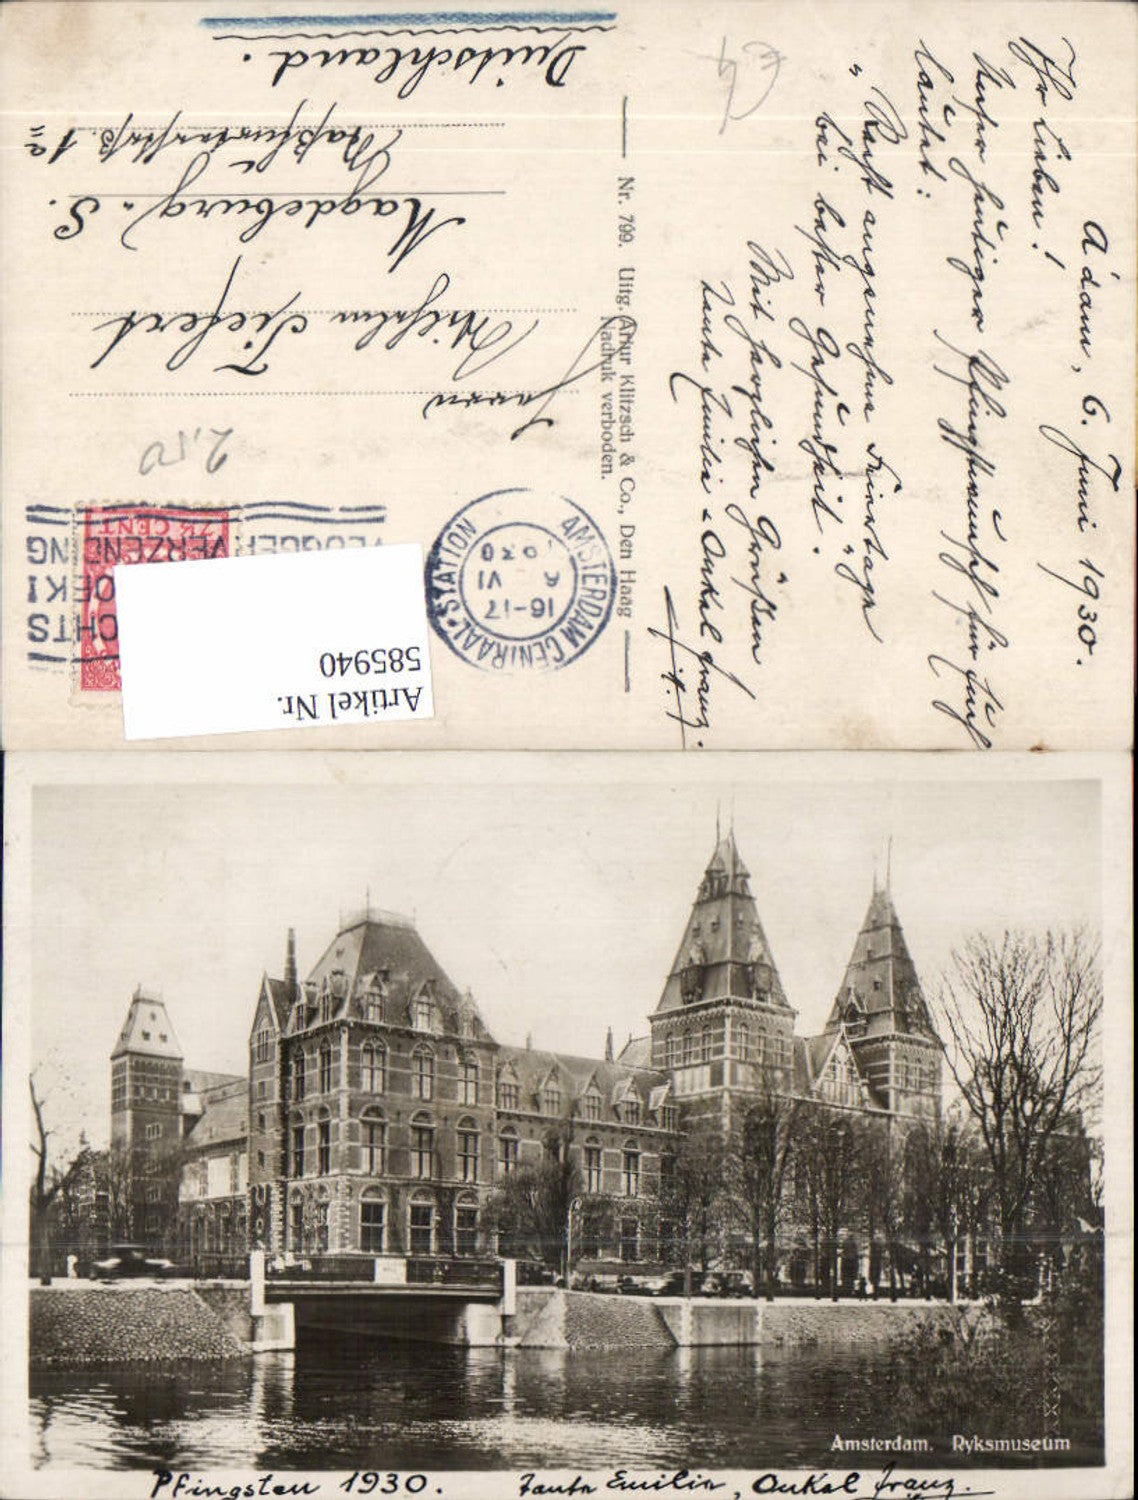 A'dam, 6. Juni 1930.
Ihr Lieben!
Unser heutiger Pfingstwunsch für Euch
lautet:
"Recht angenehme Feiertage
bei bester Gesundheit."
Mit herzlichen Grüßen
Tante Emilie & Onkel Franz.
Nr. 799. Uitg. Artur Klitzsch & Co., Den Haag
Nadruk verboden.
AMSTERDAM CENTRAAL STATION
16-17
6 VI
1930
7½ CENT
VERZENDING
2,50
Herrn
Wilhelm Siefert
Magdeburg-S.
Deutschland.
Artikel Nr.
585940
Amsterdam. Ryksmuseum
Pfingsten 1930. Tante Emilie, Onkel Franz.